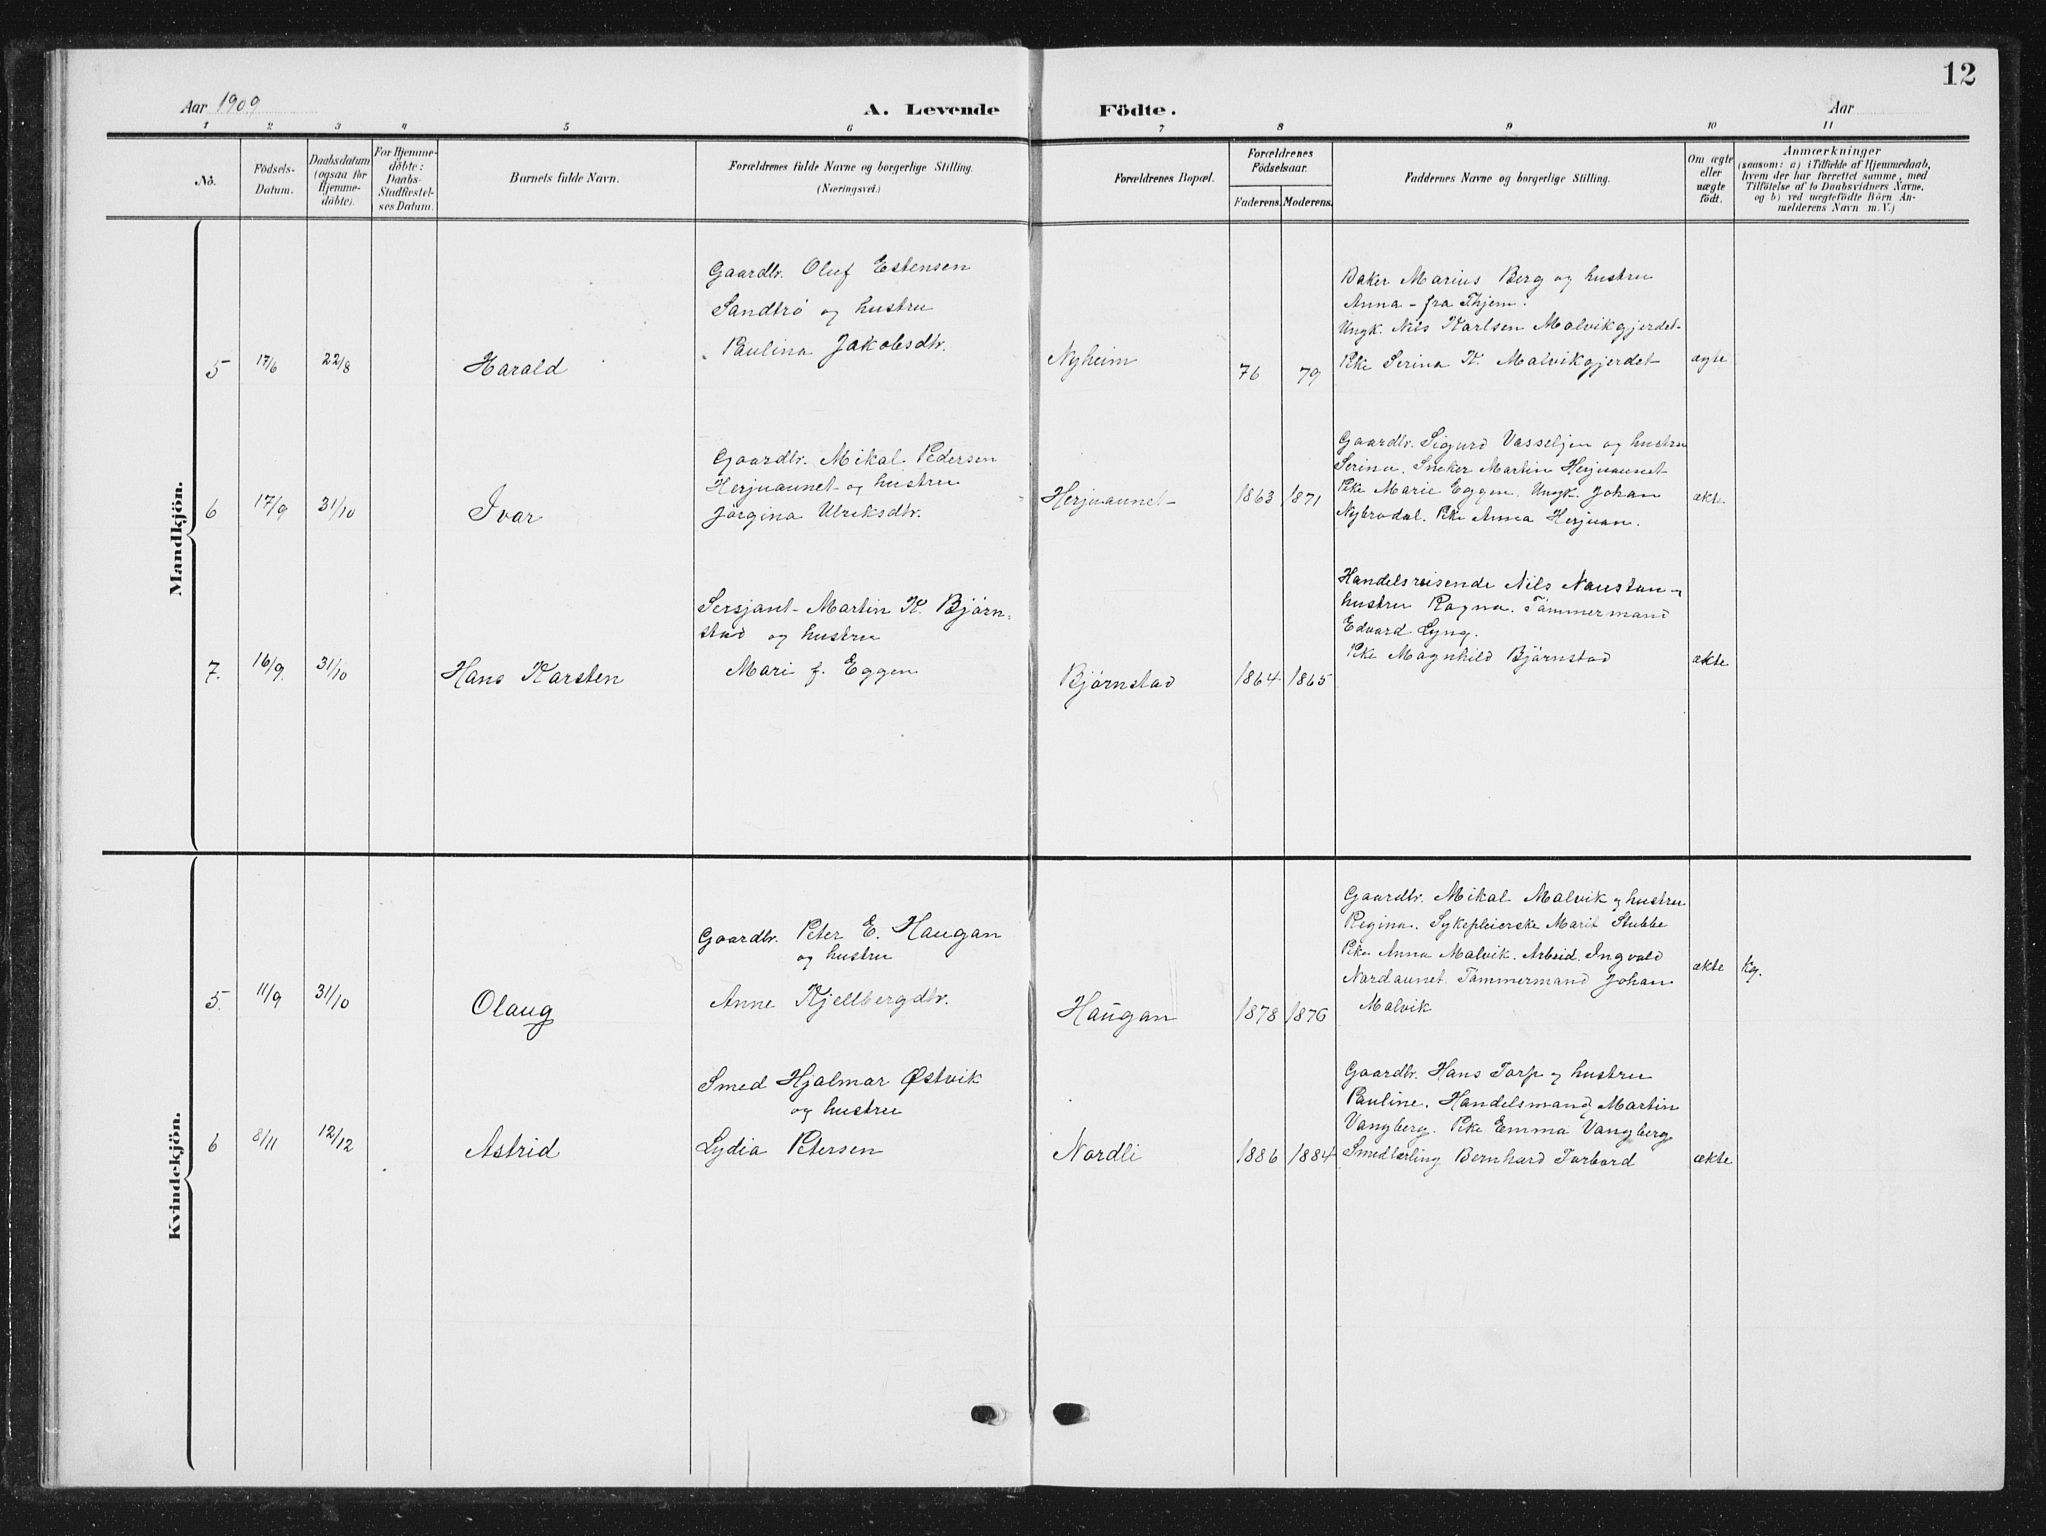 12
Aar 1909
A. Levende Födte.
Aar
1 2 3 4 5 6 7 8 9 10 11
No.
Födsels-
Datum.
Daabsdatum
(ogsaa for
Hjemme-
döbte).
For Hjemme-
döbte:
Daabs-
Stadfæstel-
ses Datum.
Barnets fulde Navn.
Forældrenes fulde Navne og borgerlige Stilling.
(Næringsvei.)
Forældrenes Bopæl.
Forældrenes
Födselsaar.
Faderens. Moderens.
Faddernes Navne og borgerlige Stilling.
Om ægte
eller
uægte
födt.
Anmærkninger
(saasom: a) i Tilfælde af Hjemmedaab,
hvem der har forrettet samme, med
Tilföielse af to Daabsvidners Navne,
og b) ved uægtefödte Börn An-
melderens Navn m. V.)
Mandkjön.
Gaardbr. Oluf Estensen
Sandtrø og hustru
Paulina Jakobsdtr.
5 17/6 22/8 Harald
Nyheim 76 79
Baker Marius Berg og hustru
Anna - fra Thjem.
Ungk. Nils Karlsen Malvikgjerdet
Pike Serina K. Malvikgjerdet
ægte
Gaardbr. Mikal Pedersen
Herjuaunet og hustru
Jørgina Ulriksdtr.
6 17/9 31/10 Ivar
Herjuaunet 1863 1871
Gaardbr. Sigurd Vasseljen og hustru
Serina. Sneker Martin Herjuaunet
Pike Marie Eggen. Ungk. Johan
Nybrodal. Pike Anna Herjuan.
ekt.
Sersjant Martin K. Bjørn-
stad og hustru
Mari f. Eggen
7. 16/9. 31/10 Hans Karsten
Bjørnstad 1864 1865
Handelsreisende Nils Naustan
hustru Ragna. Tømmermand
Edvard Lyng.
Pike Magnhild Bjørnstad
ekte
Kvindekjön.
Gaardbr. Peter E. Haugan
og hustru
Anne Kjellbergdtr.
5. 11/9 31/10 Olaug
Haugan 1878 1876
Gaardbr. Mikal Malvik og hustru
Regina. Sykepleierske Marit Stubbe
Pike Anna Malvik. Arbeid. Ingvald
Nordaunet. Tømmermand Johan
Malvik
ekte kg.
Smed Hjalmar Østvik
og hustru
Lydia Petersen
6 8/11 12/12 Astrid
Nordli 1886 1884
Gaardbr. Hans Torp og hustru
Pauline. Handelsmand Martin
Vangberg. Pike Emma Vangberg
Smedlærling Bernhard Torbord
ekte